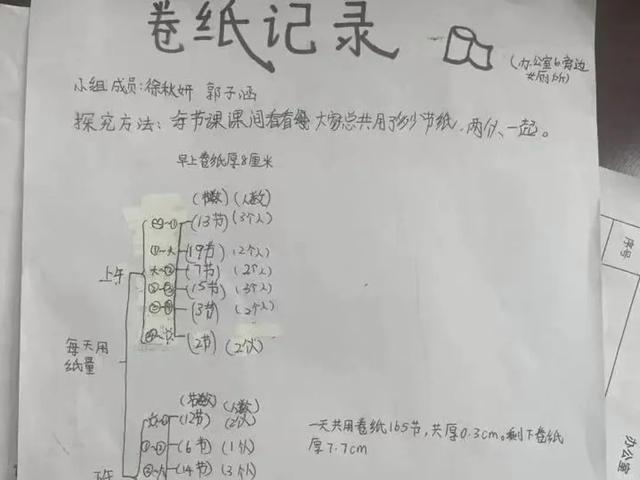 卷纸记录
(办公室6旁边
女厕所)
小组成员:徐秋妍 郭子涵
探究方法:每节课课间看看 大家总共用了多少节纸,两个人一起。
早上卷纸厚8厘米
(节数) (人数)
(13节) (3个人)
(19节) (2个人)
上午
(7节) (2个人)
(15节) (3个人)
(3节) (2个人)
(2节) (2个人)
每天用
纸量
(节数) (人数)
(12节) (2个人)
(6节) (1个人)
(14节) (3个人)
下午
一天共用卷纸165节,共厚0.3cm。剩下卷纸
厚7.7cm
序号
办公室